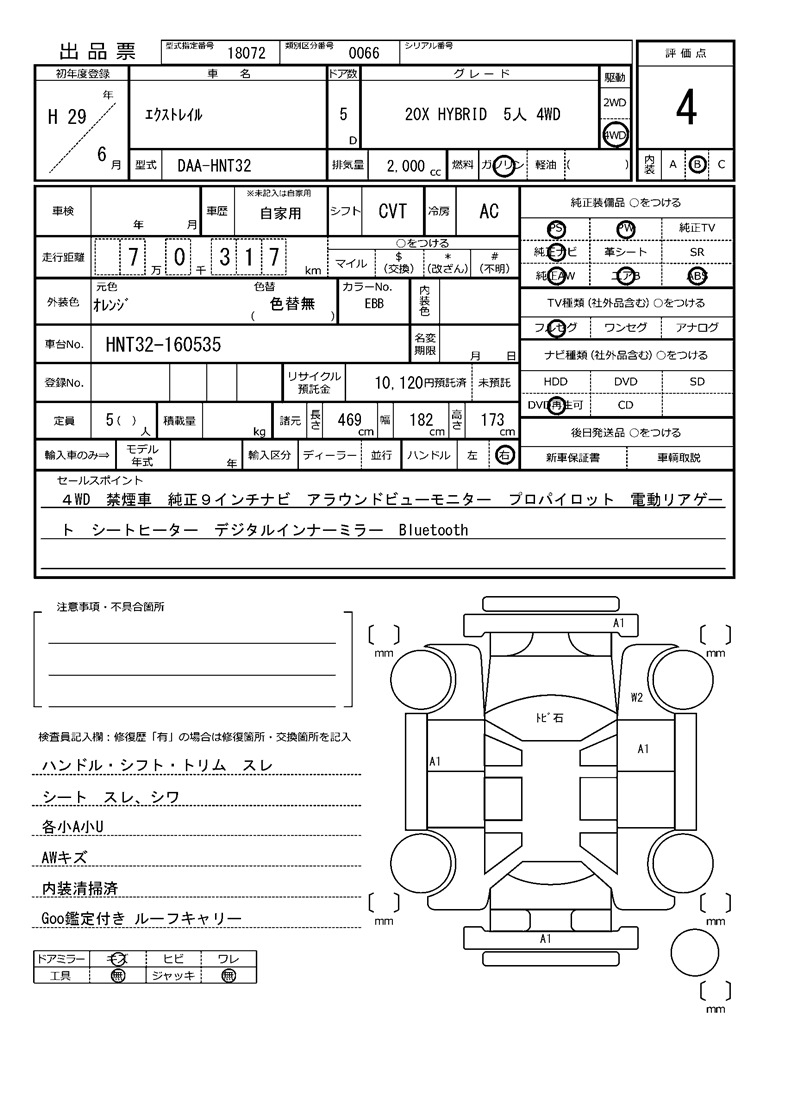 出品票 型式指定番号 18072 類別区分番号 0066 シリアル番号
評価点
4
内装 A B C
初年度登録 車名 ドア数 グレード 駆動
H 29 年 6 月 エクストレイル 5 D 20X HYBRID 5人 4WD 2WD
4WD
型式 DAA-HNT32 排気量 2.000 cc 燃料 ガソリン 軽油 ( )
車検 年 月 車歴 ※未記入は自家用 自家用 シフト CVT 冷房 AC
走行距離 7 万 0 千 3 1 7 km
○をつける
マイル $(交換) *(改ざん) #(不明)
外装色 元色 オレンジ 色替 ( 色替無 ) カラーNo. EBB 内装色
車台No. HNT32-160535 名変期限 月 日
登録No. リサイクル預託金 10,120円預託済 未預託
定員 5( )人 積載量 kg 諸元 長さ 469 cm 幅 182 cm 高さ 173 cm
輸入車のみ⇒ モデル年式 年 輸入区分 ディーラー 並行 ハンドル 左 右
純正装備品 ○をつける
PS PW 純正TV
純正ナビ 革シート SR
純正AW エアB ABS
TV種類(社外品含む)○をつける
フルセグ ワンセグ アナログ
ナビ種類(社外品含む)○をつける
HDD DVD SD
DVD再生可 CD
後日発送品 ○をつける
新車保証書 車輌取説
セールスポイント
4WD 禁煙車 純正9インチナビ アラウンドビューモニター プロパイロット 電動リアゲー
ト シートヒーター デジタルインナーミラー Bluetooth
注意事項・不具合箇所
検査員記入欄:修復歴「有」の場合は修復箇所・交換箇所を記入
ハンドル・シフト・トリム スレ
シート スレ、シワ
各小A小U
AWキズ
内装清掃済
Goo鑑定付き ルーフキャリー
ドアミラー キズ ヒビ ワレ
工具 無 ジャッキ 無
A1
mm mm
W2
トビ石
A1 A1
mm mm
A1
mm